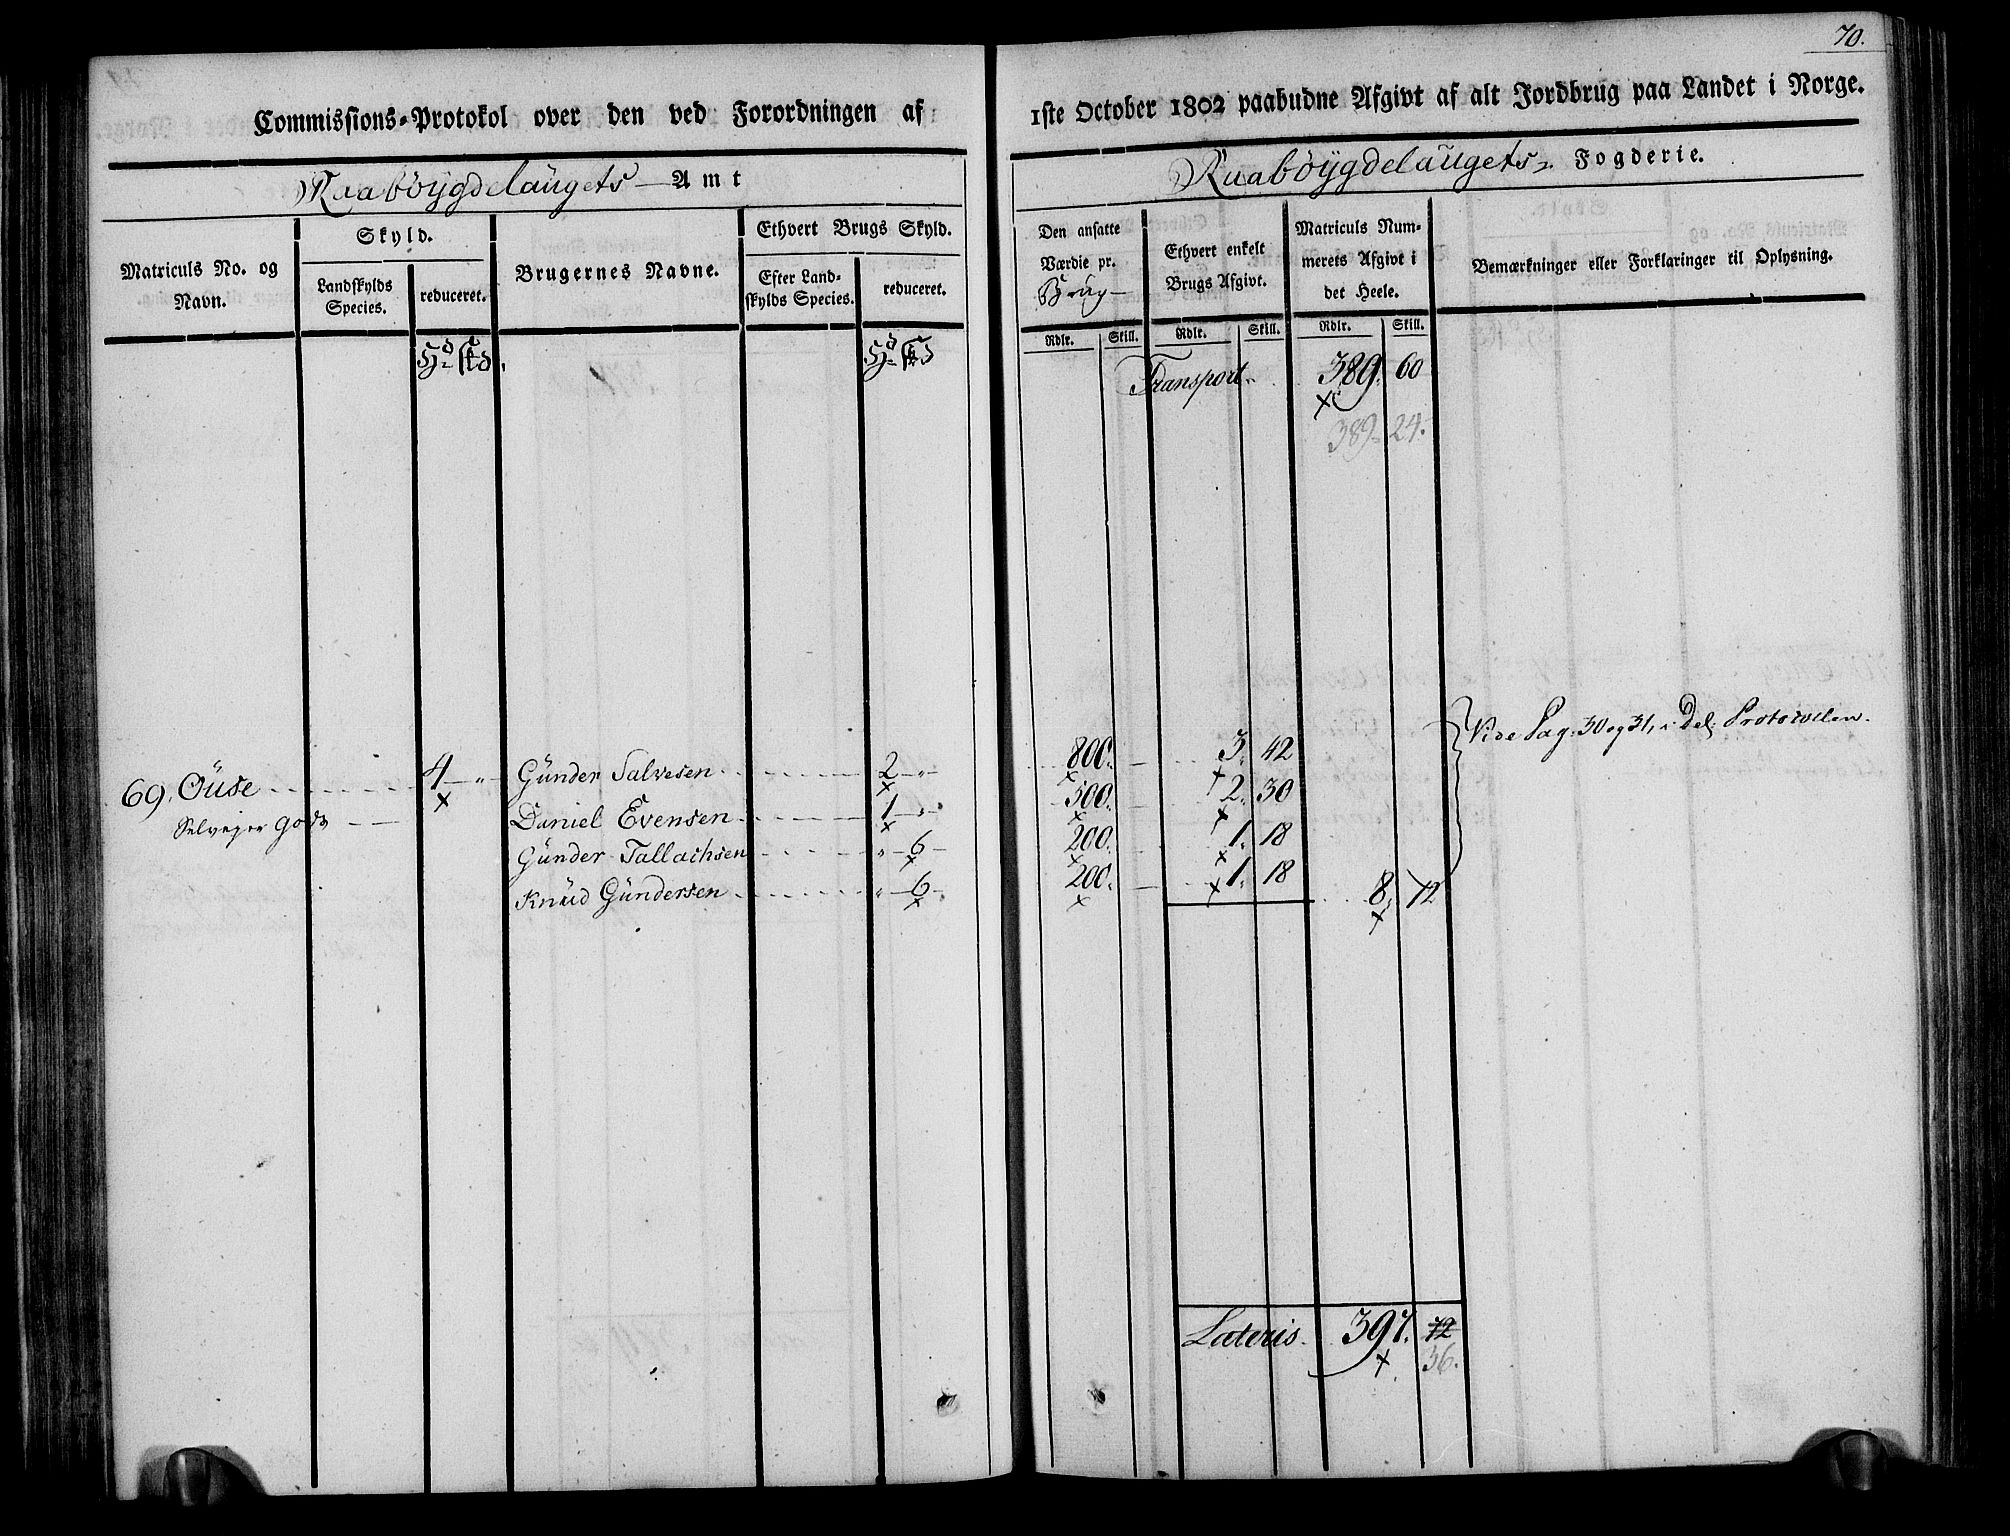 70.
Commissions-Protokol over den ved Forordningen af 1ste October 1802 paabudne Afgivt af alt Jordbrug paa Landet i Norge.
Raaböygdelaugets Amt
Raabøygdelaugets Fogderie.
Matriculs No. og Navn.
Skyld.
Landskylds Species.
reduceret.
Brugernes Navne.
Ethvert Brugs Skyld.
Efter Landskylds Species.
reduceret.
Den ansatte Værdie pr. Brug
Ethvert enkelt Brugs Afgivt.
Matriculs Nummerets Afgivt i det Heele.
Bemærkninger eller Forklaringer til Oplysning.
Rdlr. Skill. Rdlr. Skill. Rdlr. Skill.
Transport. 389. 60
389. 24.
Vide Pag: 30 og 31, i Del: Protocollen.
69. Öuse 4 " Günder Salvesen 2 " 800. 3. 42
Selvejer Gods Daniel Evensen 1 " 500. 2. 30
Günder Tallachsen " 6 200. 1. 18
Knüd Gündersen " 6 200. 1. 18 8. 12
Lateris. 397. 72
36.